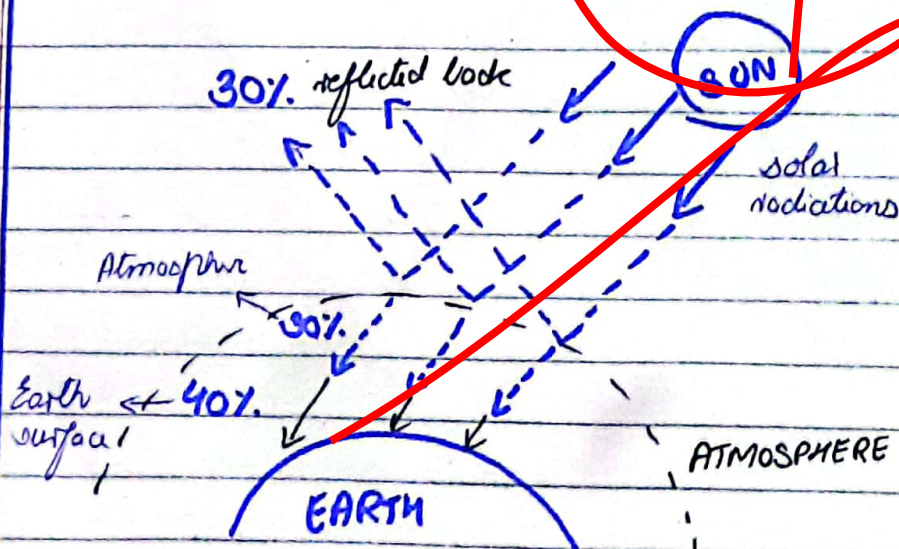 SUN
30%. reflected back
solar
radiations
Atmosphere
30%.
Earth
surface
40%.
ATMOSPHERE
EARTH